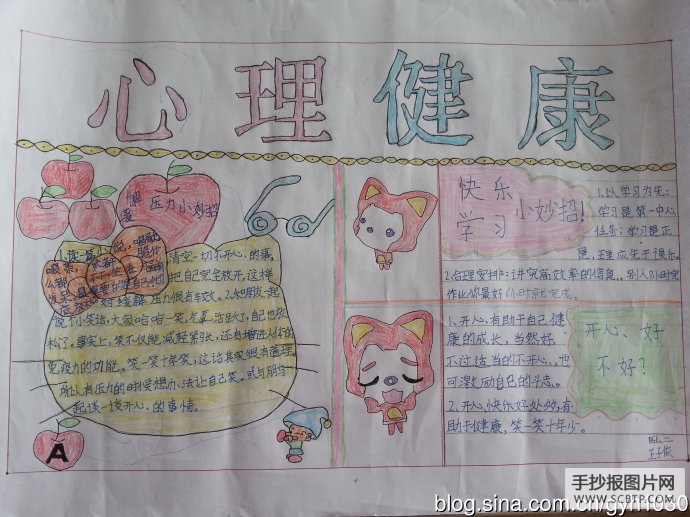 心理健康
缓解
压力小妙招
1.读一篇小说,唱
清空一切不开心的事,
把自己完全放开,这样
对缓解压力很有车效。2.和朋友一起
说个小笑话,大家哈哈一笑,气氛活跃了,自己也放
松了。事实上,笑不仅能减轻紧张,还有增进人体的
免疫力的功能。笑一笑十年笑,这话其实很有道理。
所以有压力的时候想办法让自己笑。或与朋友
一起谈一谈开心的事情。
A
快乐
学习
小妙招!
1.以学习为先:
学习是第一中心
任务;学习是正
是,理应先于娱乐。
2.合理安排:讲究高效率的信息,别人
作业你最好
1、开心,有助于自己健
康的成长,当然好,
不过适当的不开心,也
可激励自己的斗志。
2、开心快乐好处多,有
助于健康,笑一笑十年少。
开心、好
不好?
四、二
手抄报图片网
WWW.SCBTP.COM
blog.sina.com.cn/gyh1030